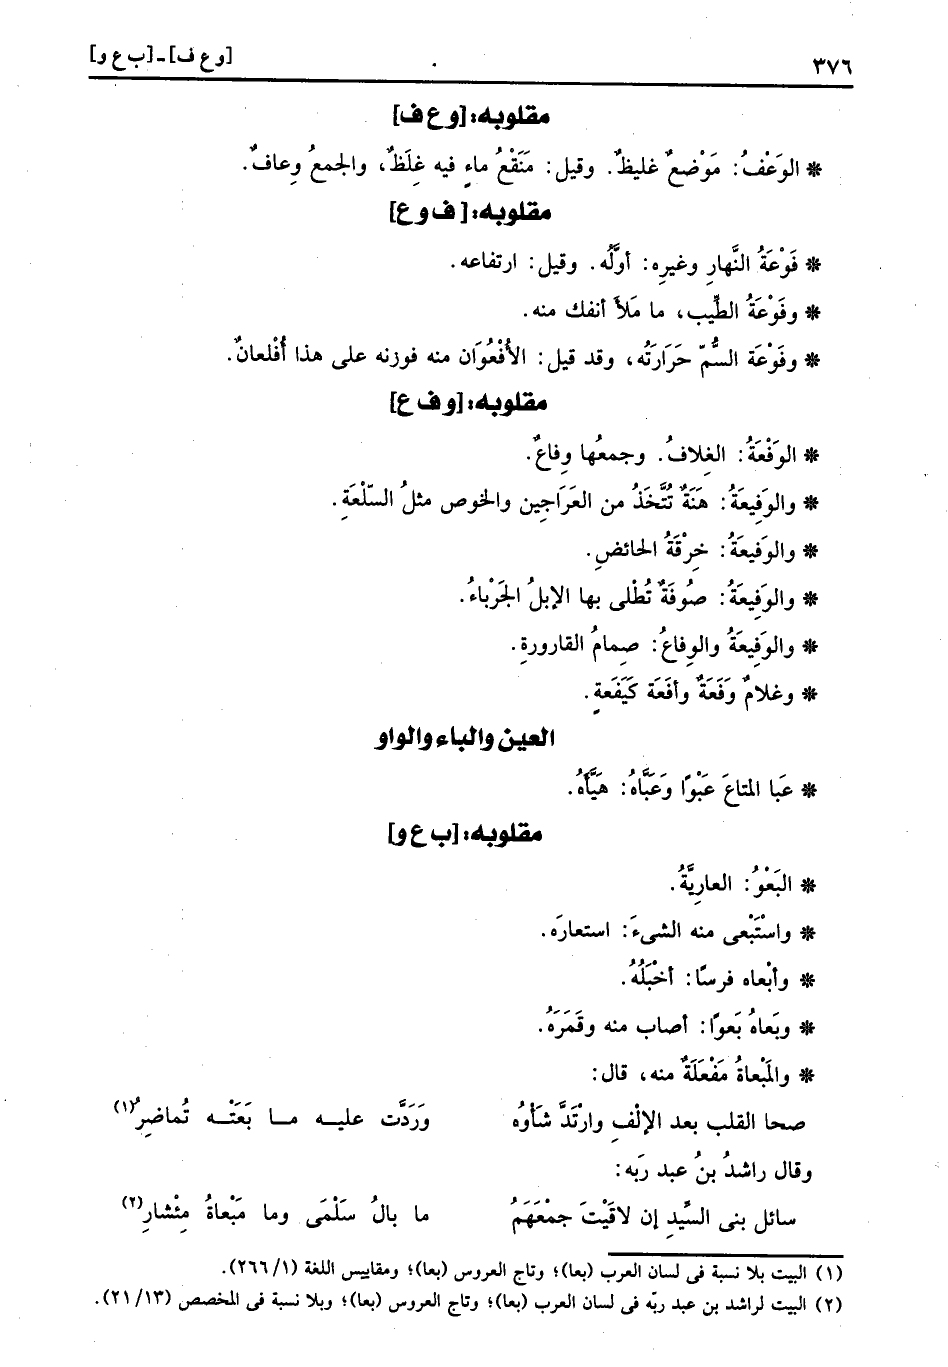 ٣٧٦ [و ع ف] ـ [ب ع و]
مقلوبه: [و ع ف]
* الوَعْفُ: مَوْضعٌ غليظٌ. وقيل: مَنَقْعُ ماءٍ فيه غِلَظٌ، والجمعُ وِعافٌ.
مقلوبه: [ف و ع]
* فَوْعَةُ النَّهارِ وغيرِه: أوَّلُه. وقيل: ارتفاعه.
* وفَوْعَةُ الطِّيب، ما مَلأَ أنفك منه.
* وفَوْعَة السُّمّ حَرَارَتُه، وقد قيل: الأُفْعُوَان منه فوزنه على هذا أُفْلعانٌ.
مقلوبه: [و ف ع]
* الوَفْعَةُ: الغِلافُ. وجمعُها وِفاعٌ.
* والوَفِيعَةُ: هَنَةٌ تُتَّخَذُ من العَرَاجِين والخوص مثلُ السّلْعَةِ.
* والوَفِيعَةُ: خِرْقَةُ الحائضِ.
* والوَفِيعَةُ: صُوفَةٌ تُطْلى بها الإبلُ الجَرْباءُ.
* والوَفِيعَةُ والوِفاعُ: صِمامُ القارورةِ.
* وغلامٌ وَفَعَةٌ وأفَعَة كَيَفَعةٍ.
العين والباء والواو
* عَبا المتاعَ عَبْوًا وَعَبَّاهُ: هَيَّأَهُ.
مقلوبه: [ب ع و]
* البَعْوُ: العارِيَّةُ.
* واسْتَبْعى منه الشىءَ: استعارَه.
* وأبْعاه فرسًا: أخْبَلَهُ.
* وبَعاهُ بَعوًا: أصاب منه وقَمَرَهُ.
* والمَبْعاةُ مَفْعَلَةٌ منه، قال:
صحا القلب بعد الإلْفِ وارْتَدَّ شَأْوُه وَرَدَّت عليه ما بَعَتْه تُماضِرُ(١)
وقال راشدُ بنُ عبد رَبه:
سائل بنى السِّيدِ إن لاقَيْتَ جمْعَهَمُ ما بالُ سَلْمَى وما مَبْعاةُ مِئْشارِ(٢)
(١) البيت بلا نسبة فى لسان العرب (بعا)؛ وتاج العروس (بعا)؛ ومقاييس اللغة (١/ ٢٦٦).
(٢) البيت لراشد بن عبد ربّه فى لسان العرب (بعا)؛ وتاج العروس (بعا)؛ وبلا نسبة فى المخصص (١٣/ ٢١).